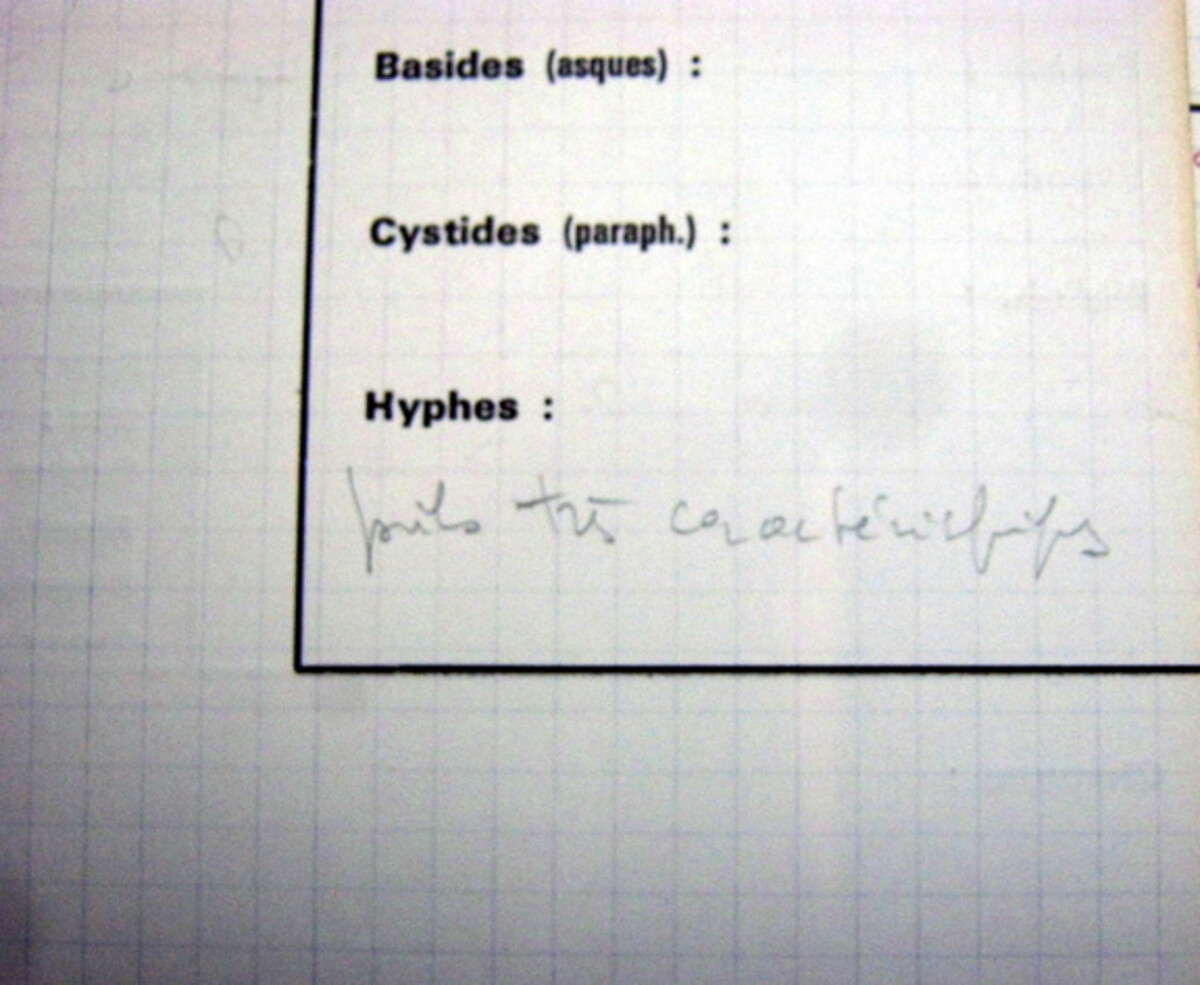 Basides (asques) :
Cystides (paraph.) :
Hyphes :
poils très caractéristiques